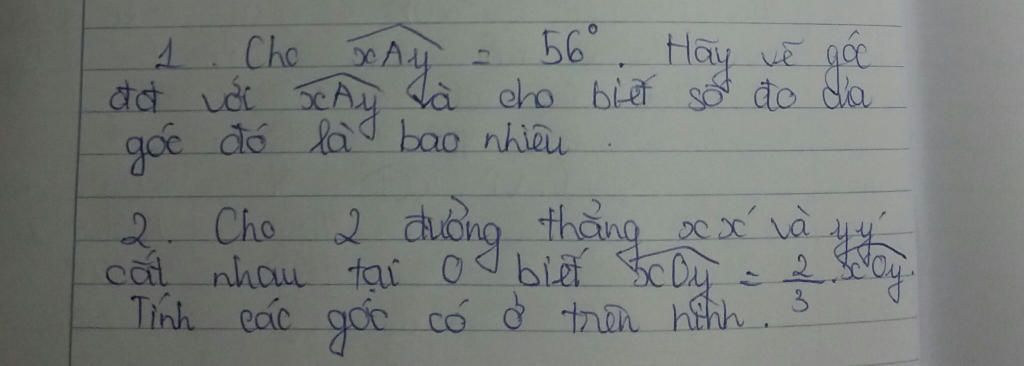 1. Cho xAy = 56°. Hãy vẽ góc
đđ với xAy và cho biết số đo của
góc đó là bao nhiêu.
2. Cho 2 đường thẳng xx' và yy'
cắt nhau tại O biết xOy = 2/3 xOy'.
Tính các góc có ở trên hình.